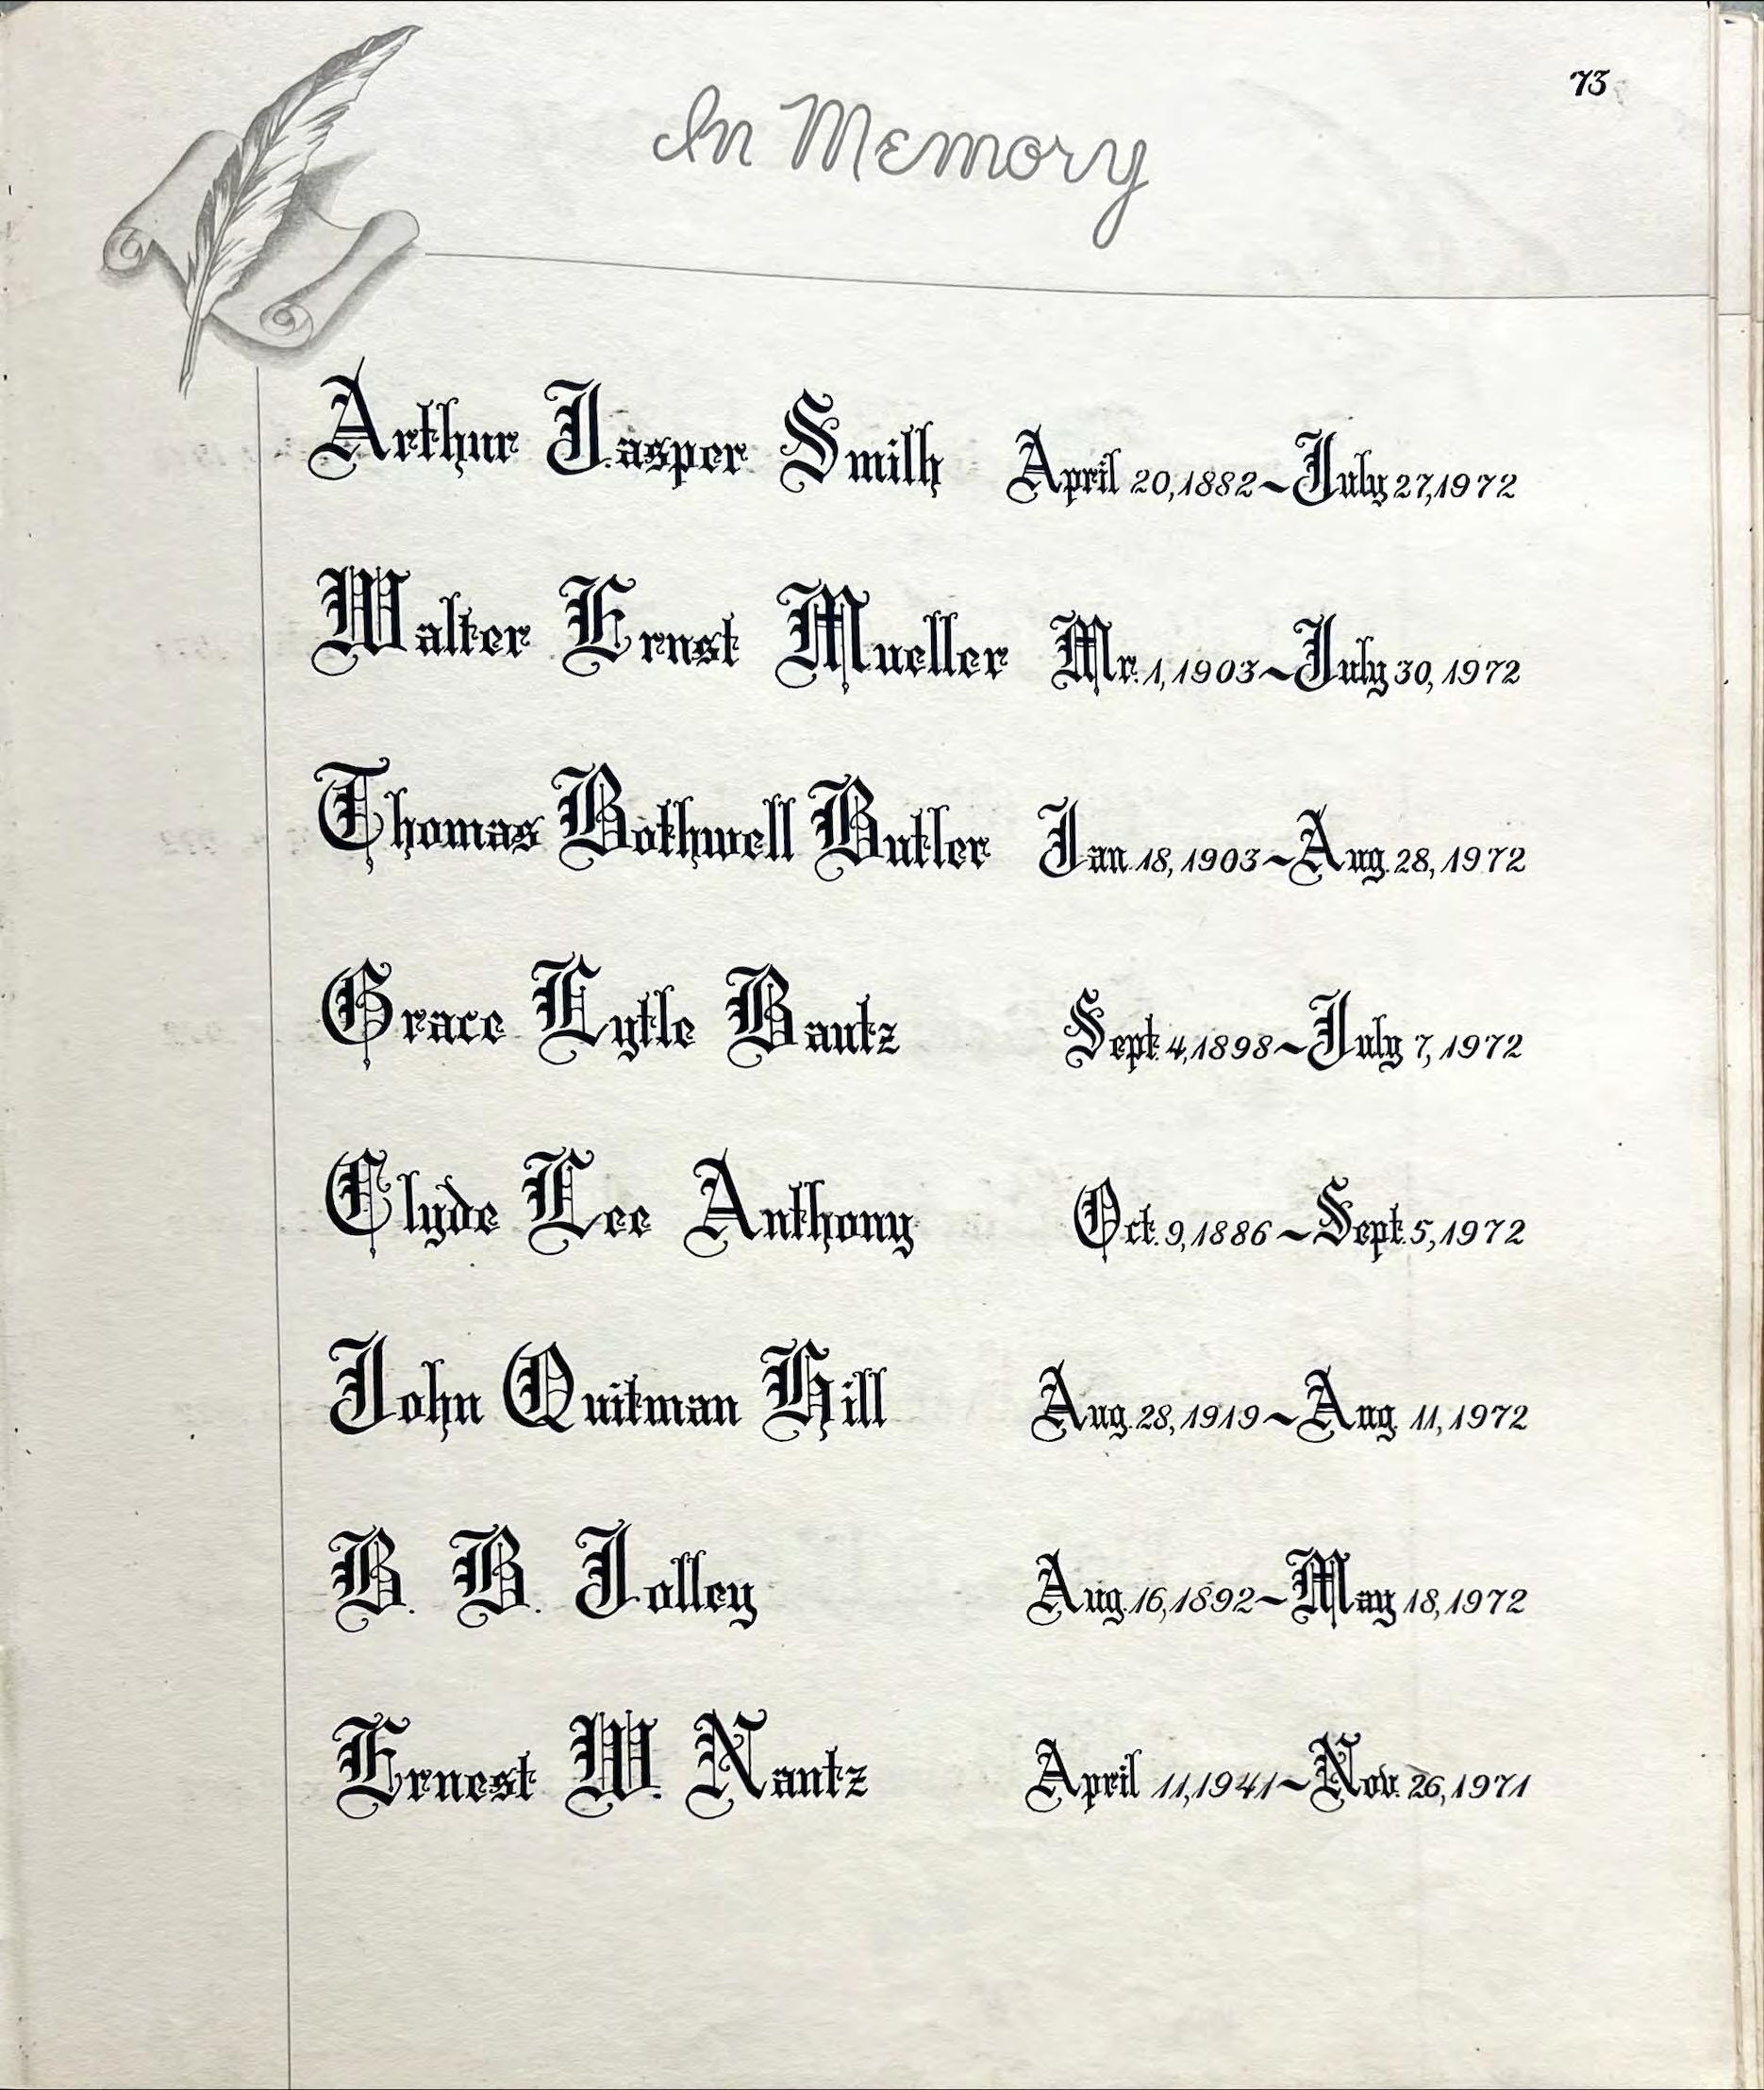 73
In Memory
Arthur Jasper Smith April 20, 1882 ~ July 27, 1972
Walter Ernst Mueller Mr. 1, 1903 ~ July 30, 1972
Thomas Bothwell Butler Jan. 18, 1903 ~ Aug. 28, 1972
Grace Lytle Bautz Sept. 4, 1898 ~ July 7, 1972
Clyde Lee Anthony Oct. 9, 1886 ~ Sept. 5, 1972
John Quitman Hill Aug. 28, 1919 ~ Aug. 11, 1972
B. B. Jolley Aug. 16, 1892 ~ May 18, 1972
Ernest W. Nantz April 11, 1941 ~ Nov. 26, 1971